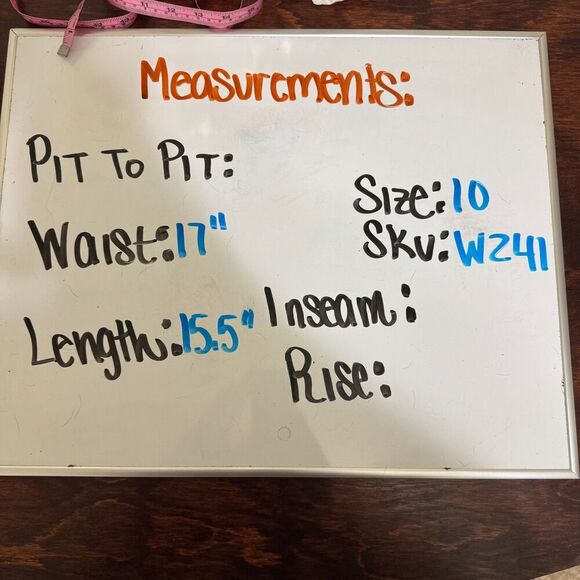 Measurements:
Pit To Pit:
Size: 10
Waist: 17"
SKU: W241
Length: 15.5"
Inseam:
Rise: